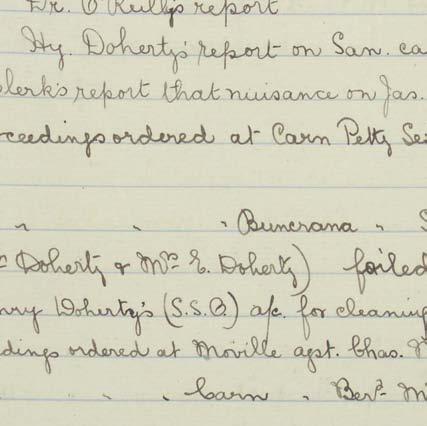 Dr. O'Reilly's report
Hy. Doherty's report on San. ca
clerk's report that nuisance on Jas.
ceedings ordered at Carn Petty Ses
" " " Buncrana " S
Doherty & Mrs E. Doherty) foiled
nry Doherty's (S.S.O.) a/c. for cleaning
dings ordered at Moville agst. Chas.
" " " Carn " Berd. M